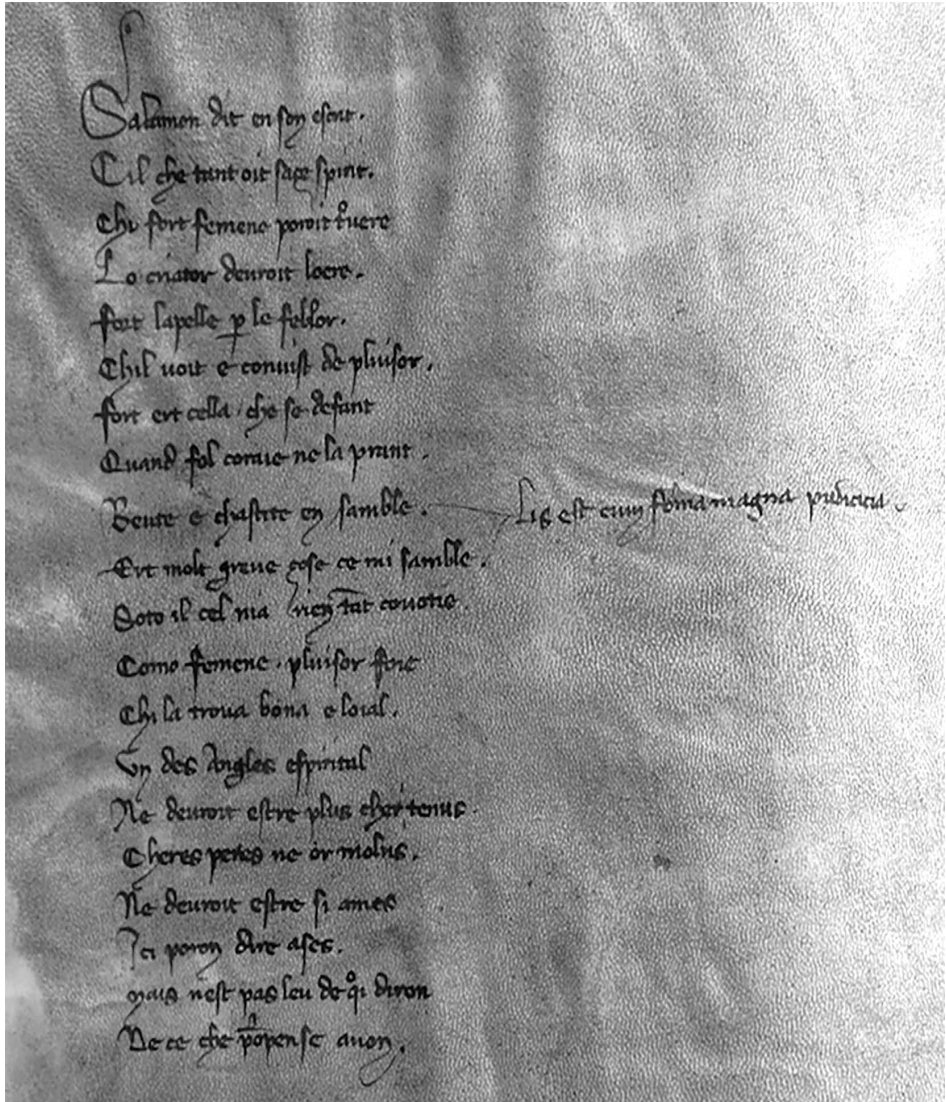 Salamon dit en son escrit.
Cil che tant oit sage spirit.
Chi fort femene poroit t̊uere
Lo criator deuroit loere.
fort lapelle ꝑ le feblor.
Chil uoit e conuist de pluisor.
fort ert cella che se defant
Quand fol coraie ne la prant.
Beute e chastite en samble. Lis est cum foma magna pudicicia.
Ert molt greue cose ce mi samble.
Soto il cel nia rien tāt couotie.
Como femene. pluisor foie
Chi la troua bona e loial.
Vn des Angles espirital
Ne deuroit estre plus cher tenus.
Cheres peres ne or molus.
Ne deuroit estre si ames
Ici poron dire ases.
mais nest pas leu de qi diron
De ce che ꝓpense auon.